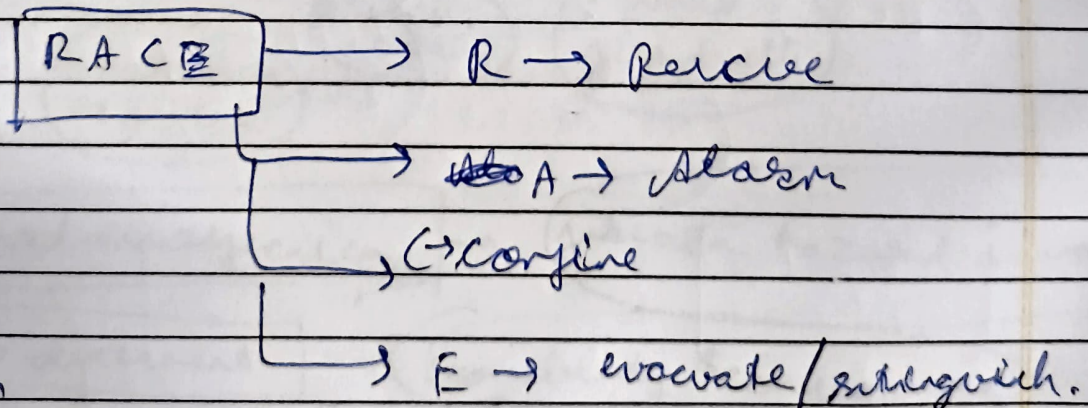 RACE → R → Rescue
A → Alarm
C → Confine
E → evacuate / extinguish.